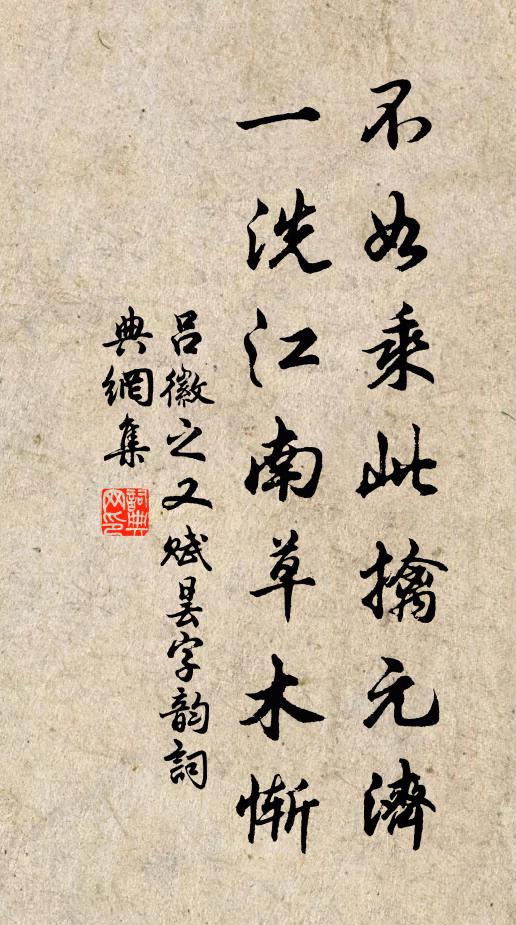 不如乘此擒元濟
一洗江南草木慚
吕徽之又賦曇字韵詞
典網集
詞典网印